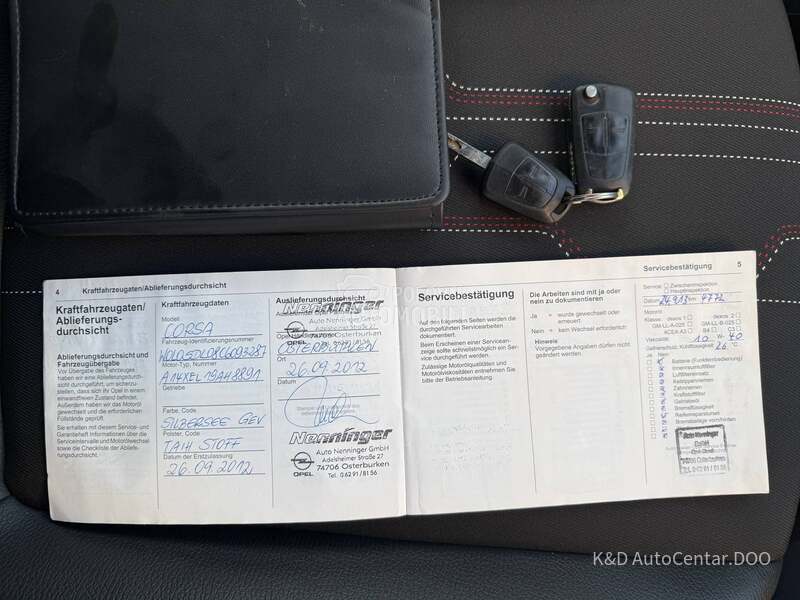 4 Kraftfahrzeugdaten/Ablieferungsdurchsicht
Kraftfahrzeugdaten/
Ablieferungs-
durchsicht
Ablieferungsdurchsicht und
Fahrzeugübergabe
Vor Übergabe des Fahrzeuges
haben wir eine Ablieferungsdurch-
sicht durchgeführt, um sicherzu-
stellen, dass sich Ihr Opel in einem
einwandfreien Zustand befindet.
Außerdem haben wir das Motoröl
gewechselt und die erforderlichen
Füllstände geprüft.
Sie erhalten mit diesem Service- und
Garantieheft Informationen über die
Serviceintervalle und Motorölwechsel
sowie die Checkliste der Abliefe-
rungsdurchsicht.
Kraftfahrzeugdaten
Modell
CORSA
Fahrzeug-Identifizierungsnummer
Motor-Typ, Nummer
A14XEL19AH8891
Getriebe
Farbe, Code
SILBERSEE GEV
Polster, Code
TAIH STOFF
Datum der Erstzulassung
26.09.2012
Auslieferungsdurchsicht
Nenninger
Auto Nenninger GmbH
Adelsheimer Straße 27
74706 Osterburken
OPEL
OSTERBURKEN
Ort
26.09.2012
Datum
Nenninger
Auto Nenninger GmbH
Adelsheimer Straße 27
74706 Osterburken
Tel. 0 62 91 / 81 56
OPEL
Servicebestätigung 5
Servicebestätigung
Auf den folgenden Seiten werden die
durchgeführten Servicearbeiten
dokumentiert.
Beim Erscheinen einer Servicean-
zeige sollte schnellstmöglich ein Ser-
vice durchgeführt werden.
Zulässige Motorölqualitäten und
Motorölviskositäten entnehmen Sie
bitte der Betriebsanleitung.
Die Arbeiten sind mit ja oder
nein zu dokumentieren
Ja = wurde gewechselt oder
erneuert.
Nein = kein Wechsel erforderlich
Hinweis
Vorgegebene Angaben dürfen nicht
geändert werden.
Service Zwischeninspektion
Hauptinspektion
Datum 24.9.13 km 9772
Motoröl:
Klasse: dexos 1 dexos 2
GM-LL-A-025 GM-LL-B-025
ACEA A3 B4 C3
Viskosität: 10 W 40
Gefrierschutz, Kühlflüssigkeit -26 °C
Ja Nein
Batterie (Funkfernbedienung)
Innenraumluftfilter
Luftfiltereinsatz
Keilrippenriemen
Zahnriemen
Kraftstofffilter
Getriebeöl
Bremsflüssigkeit
Reifenreparaturset
Auto Nenninger
GmbH
K&D AutoCentar.DOO